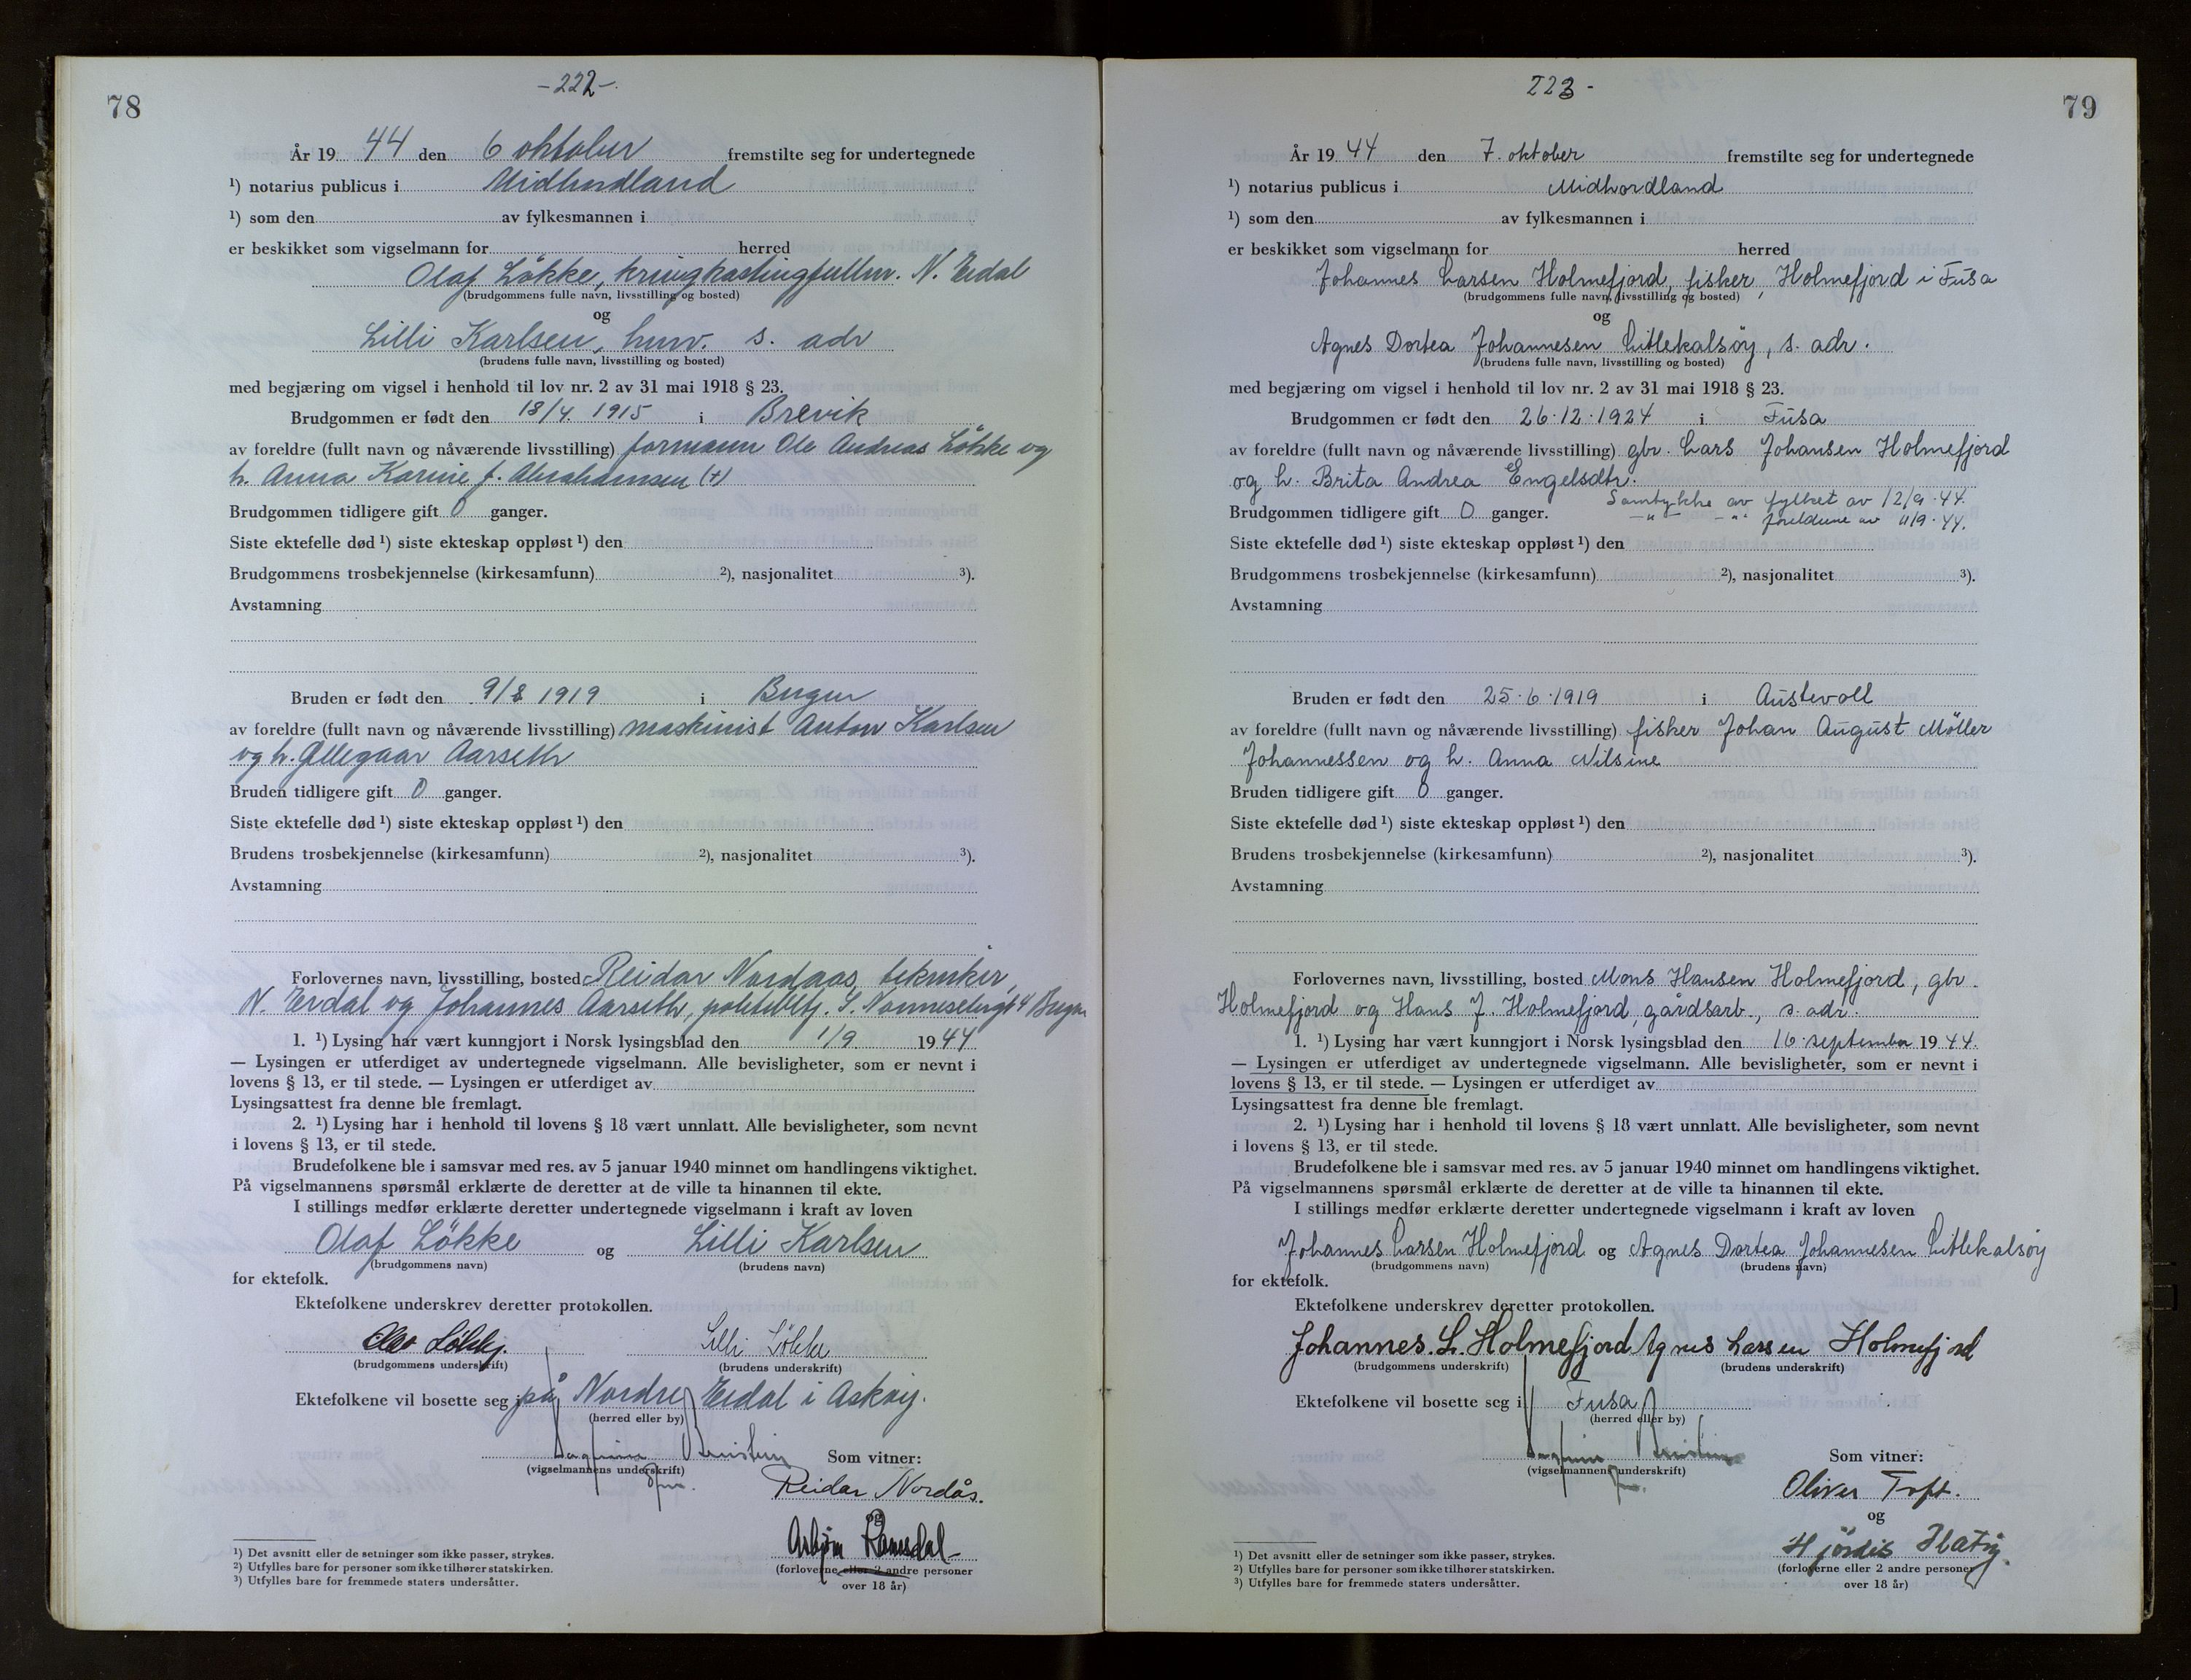 78
-222-
År 1944 den 6 oktober fremstilte seg for undertegnede
¹) notarius publicus i Midhordland
¹) som den av fylkesmannen i
er beskikket som vigselmann for herred
Olaf Løkke, kringkastingfullm. N. Erdal
(brudgommens fulle navn, livsstilling og bosted)
og
Lilli Karlsen, husv. s. adr
(brudens fulle navn, livsstilling og bosted)
med begjæring om vigsel i henhold til lov nr. 2 av 31 mai 1918 § 23.
Brudgommen er født den 18/4. 1915 i Brevik
av foreldre (fullt navn og nåværende livsstilling) formann Ole Andreas Løkke og
h. Anna Karine f. Abrahamsen (+)
Brudgommen tidligere gift 0 ganger.
Siste ektefelle død ¹) siste ekteskap oppløst ¹) den
Brudgommens trosbekjennelse (kirkesamfunn) ²), nasjonalitet ³).
Avstamning
Bruden er født den 9/8 1919 i Bergen
av foreldre (fullt navn og nåværende livsstilling) maskinist Anton Karlsen
og h. Øllegaar Aarseth
Bruden tidligere gift 0 ganger.
Siste ektefelle død ¹) siste ekteskap oppløst ¹) den
Brudens trosbekjennelse (kirkesamfunn) ²), nasjonalitet ³).
Avstamning
Forlovernes navn, livsstilling, bosted Reidar Nordaas, tekniker,
N. Erdal og Johannes Aarseth, politibetj. S. Nonnesetergt 4 Bergen
1. ¹) Lysing har vært kunngjort i Norsk lysingsblad den 1/9. 1944
— Lysingen er utferdiget av undertegnede vigselmann. Alle bevisligheter, som er nevnt i
lovens § 13, er til stede. — Lysingen er utferdiget av
Lysingsattest fra denne ble fremlagt.
2. ¹) Lysing har i henhold til lovens § 18 vært unnlatt. Alle bevisligheter, som nevnt
i lovens § 13, er til stede.
Brudefolkene ble i samsvar med res. av 5 januar 1940 minnet om handlingens viktighet.
På vigselmannens spørsmål erklærte de deretter at de ville ta hinannen til ekte.
I stillings medfør erklærte deretter undertegnede vigselmann i kraft av loven
Olaf Løkke og Lilli Karlsen
(brudgommens navn) (brudens navn)
for ektefolk.
Ektefolkene underskrev deretter protokollen.
Løkke. Lilli Løkke
(brudgommens underskrift) (brudens underskrift)
Ektefolkene vil bosette seg i på Nordre Erdal i Askøy.
(herred eller by)
Som vitner:
(vigselmannens underskrift)
Reidar Nordås.
og
Asbjørn Ramsdal
(forloverne eller 2 andre personer
over 18 år)
¹) Det avsnitt eller de setninger som ikke passer, strykes.
²) Utfylles bare for personer som ikke tilhører statskirken.
³) Utfylles bare for fremmede staters undersåtter.
79
223-
År 1944 den 7. oktober fremstilte seg for undertegnede
¹) notarius publicus i Midhordland
¹) som den av fylkesmannen i
er beskikket som vigselmann for herred
Johannes Larsen Holmefjord, fisker, Holmefjord i Fusa
(brudgommens fulle navn, livsstilling og bosted)
og
Agnes Dortea Johannesen Litlekalsøy, s. adr.
(brudens fulle navn, livsstilling og bosted)
med begjæring om vigsel i henhold til lov nr. 2 av 31 mai 1918 § 23.
Brudgommen er født den 26.12.1924 i Fusa
av foreldre (fullt navn og nåværende livsstilling) gbr. Lars Johansen Holmefjord
og h. Brita Andrea Engelsdtr.
Samtykke av fylket av 12/9.44.
Brudgommen tidligere gift 0 ganger. —"— —"— foreldrene av 11/9.44.
Siste ektefelle død ¹) siste ekteskap oppløst ¹) den
Brudgommens trosbekjennelse (kirkesamfunn) ²), nasjonalitet ³).
Avstamning
Bruden er født den 25.6.1919 i Austevoll
av foreldre (fullt navn og nåværende livsstilling) fisker Johan August Møller
Johannessen og h. Anna Nilsine
Bruden tidligere gift 0 ganger.
Siste ektefelle død ¹) siste ekteskap oppløst ¹) den
Brudens trosbekjennelse (kirkesamfunn) ²), nasjonalitet ³).
Avstamning
Forlovernes navn, livsstilling, bosted Mons Hansen Holmefjord, gbr.
Holmefjord og Hans J. Holmefjord, gårdsarb., s. adr.
1. ¹) Lysing har vært kunngjort i Norsk lysingsblad den 16. september 1944.
— Lysingen er utferdiget av undertegnede vigselmann. Alle bevisligheter, som er nevnt i
lovens § 13, er til stede. — Lysingen er utferdiget av
Lysingsattest fra denne ble fremlagt.
2. ¹) Lysing har i henhold til lovens § 18 vært unnlatt. Alle bevisligheter, som nevnt
i lovens § 13, er til stede.
Brudefolkene ble i samsvar med res. av 5 januar 1940 minnet om handlingens viktighet.
På vigselmannens spørsmål erklærte de deretter at de ville ta hinannen til ekte.
I stillings medfør erklærte deretter undertegnede vigselmann i kraft av loven
Johannes Larsen Holmefjord og Agnes Dortea Johannesen Litlekalsøy
(brudgommens navn) (brudens navn)
for ektefolk.
Ektefolkene underskrev deretter protokollen.
Johannes. L. Holmefjord Agnes Larsen Holmefjord
(brudgommens underskrift) (brudens underskrift)
Ektefolkene vil bosette seg i Fusa
(herred eller by)
Som vitner:
(vigselmannens underskrift)
Oliver Toft.
og
Hjördis Hatøy.
(forloverne eller 2 andre personer
over 18 år)
¹) Det avsnitt eller de setninger som ikke passer, strykes.
²) Utfylles bare for personer som ikke tilhører statskirken.
³) Utfylles bare for fremmede staters undersåtter.